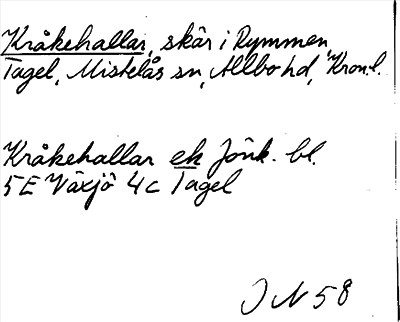 Kråkehallar, skär i Rymmen,
Tagel, Mistelås sn, Allbo hd, Kron.l.
Kråkehallar ek Jönk. bl.
5E Växjö 4c Tagel
JN 58